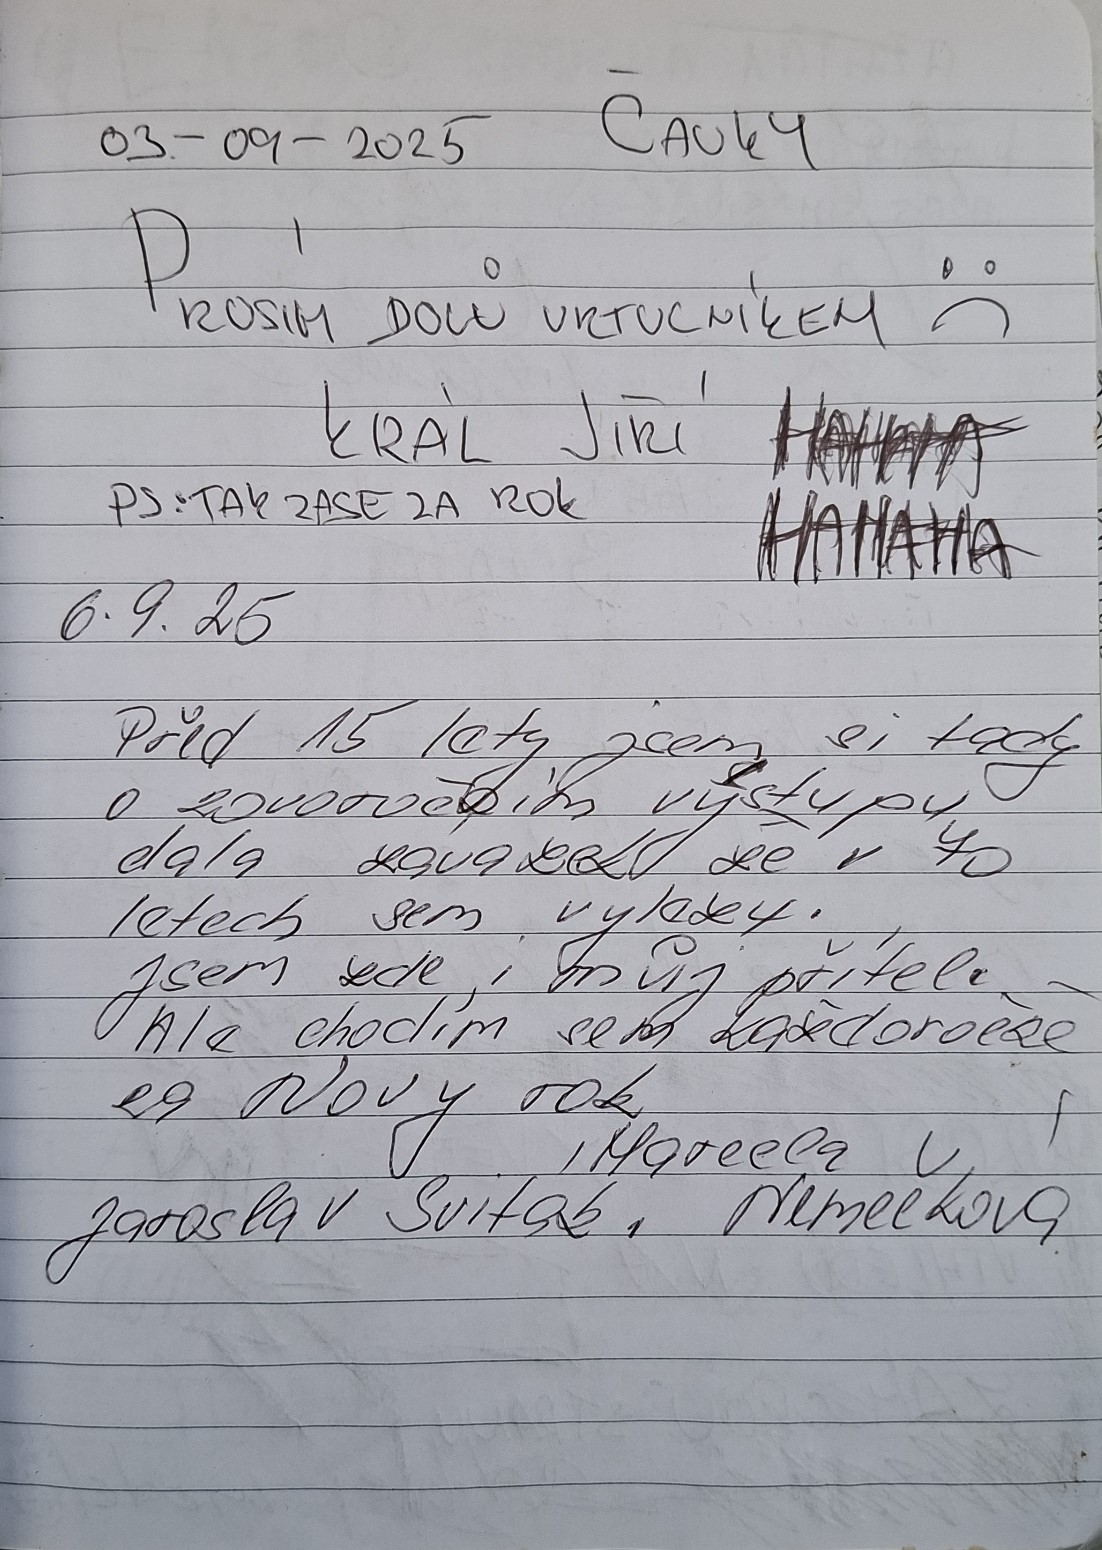 03.-09-2025 ČAUKY
PROSÍM DOLŮ VRTULNÍKEM
KRÁL JIŘÍ HAHAHA
PS: TAK ZASE ZA ROK HAHAHA
6.9.25
Před 15 lety jsem si tady
o novoročním výstupu
dala závazek že v 40
letech sem vylezu.
Jsem zde i můj přítel.
Ale chodím sem každoročně
na Nový rok
Marcela V.
Jaroslav Sviták. Němečková